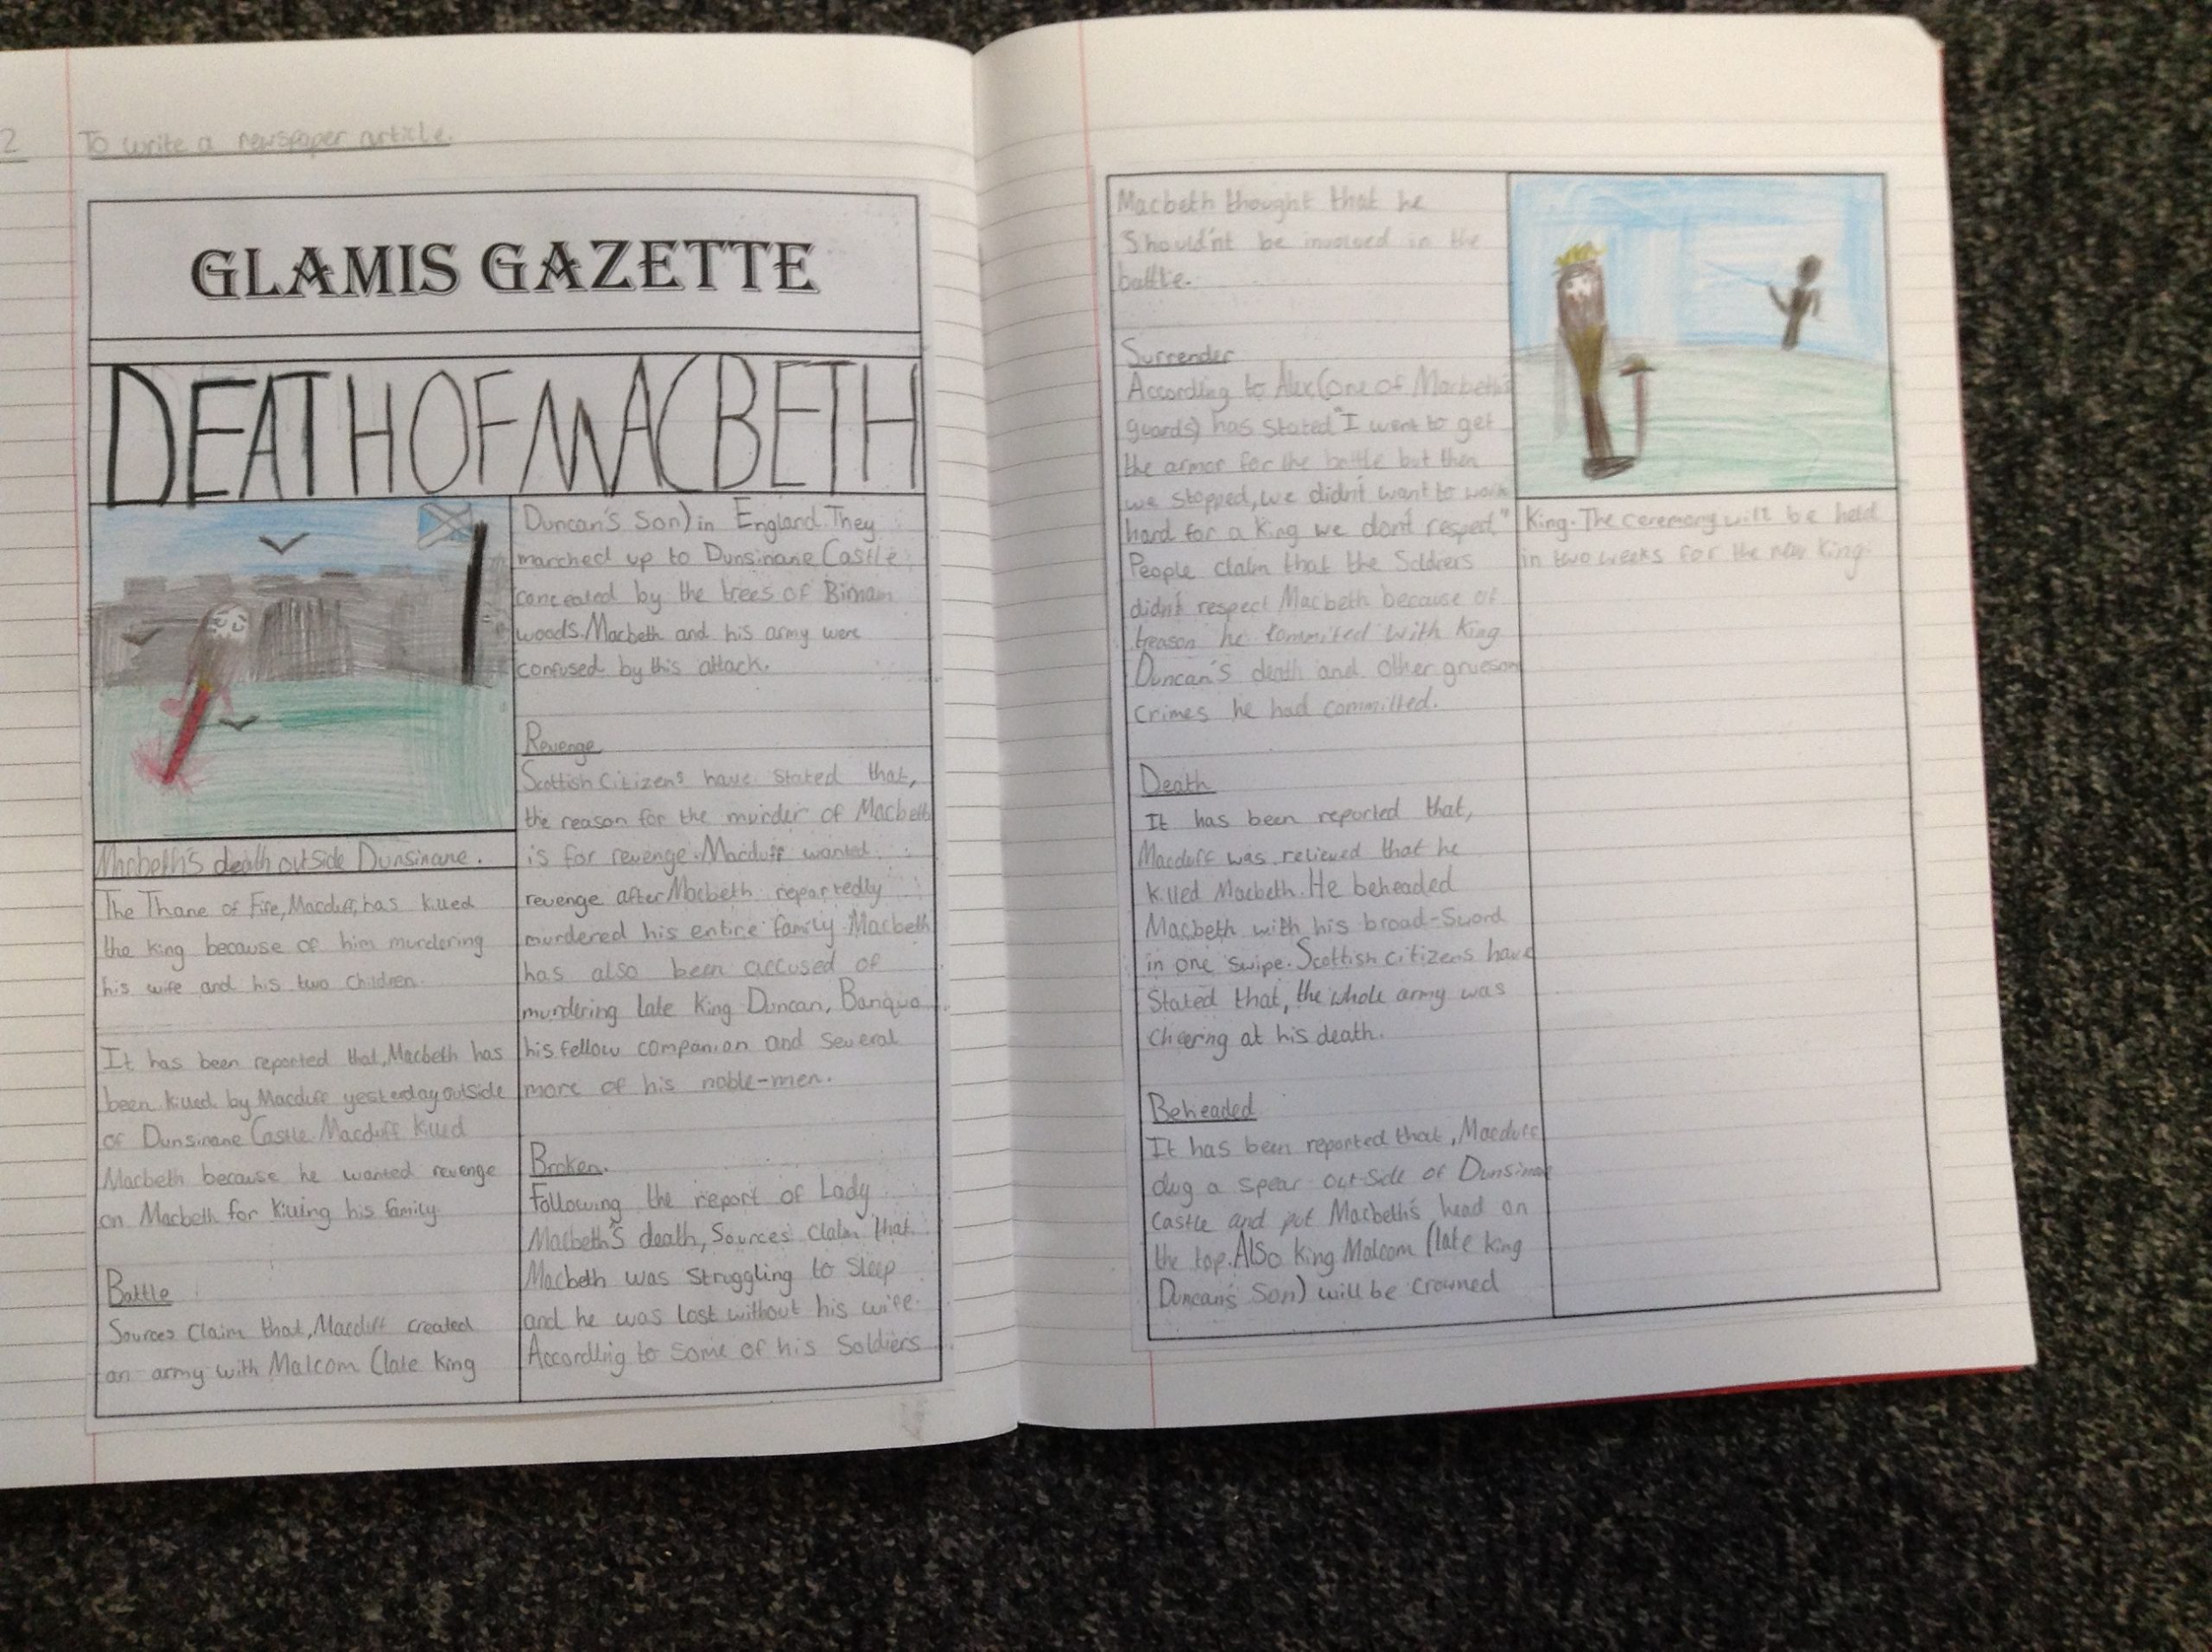 2
To write a newspaper article.
GLAMIS GAZETTE
DEATH OF MACBETH
Macbeth's death outside Dunsinane.
The Thane of Fife, Macduff, has killed
the king because of him murdering
his wife and his two children.
It has been reported that, Macbeth has
been killed by Macduff yesterday outside
of Dunsinane Castle. Macduff killed
Macbeth because he wanted revenge
on Macbeth for killing his family.
Battle
Sources claim that, Macduff created
an army with Malcom (late king
Duncan's son) in England. They
marched up to Dunsinane Castle
concealed by the trees of Birnam
woods. Macbeth and his army were
confused by this attack.
Revenge
Scottish Citizens have stated that,
the reason for the murder of Macbeth
is for revenge. Macduff wanted
revenge after Macbeth reportedly
murdered his entire family. Macbeth
has also been accused of
murdering late King Duncan, Banquo
his fellow companion and several
more of his noble-men.
Broken.
Following the report of Lady
Macbeth's death, Sources claim that
Macbeth was struggling to sleep
and he was lost without his wife.
Accordling to some of his Soldiers
Macbeth thought that he
Should'nt be involved in the
battle.
Surrender
According to Alex (one of Macbeth's
guards) has stated "I went to get
the armor for the battle but then
we stopped, we didn't want to work
hard for a King we don't respect."
People claim that the Soldiers
didn't respect Macbeth because of
treason he commited with King
Duncan's death and other gruesom
crimes he had committed.
Death
It has been reported that,
Macduff was relieved that he
killed Macbeth. He beheaded
Macbeth with his broad-Sword
in one swipe. Scottish citizens have
Stated that, the whole army was
cheering at his death.
Beheaded
It has been reported that, Macduff
dug a spear out-side of Dunsinane
Castle and put Macbeth's head on
the top. Also king Malcom (late king
Duncan's Son) will be crowned
King. The ceremony will be held
in two weeks for the new King.